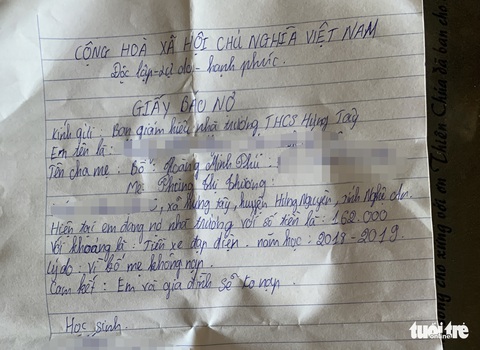 CỘNG HOÀ XÃ HỘI CHỦ NGHĨA VIỆT NAM
Độc lập - tự do - hạnh phúc.
GIẤY BÁO NỢ
Kính gửi: Ban giám hiệu nhà trường THCS Hưng Tây
Em tên là:
Tên cha mẹ: Bố: Hoàng Minh Phú
Mẹ: Phùng Thị Thường:
, xã hưng tây, huyện Hưng Nguyên, tỉnh Nghệ An.
Hiện tại em đang nợ nhà trường với số tiền là: 162.000
Với khoảng kì: Tiền xe đạp điện. năm học: 2018-2019.
Lý do: Vì bố mẹ không nạp.
Cam kết: Em và gia đình sẽ nạp.
Học sinh.
tuổi trẻ
online
Thiên Chúa đã ban cho